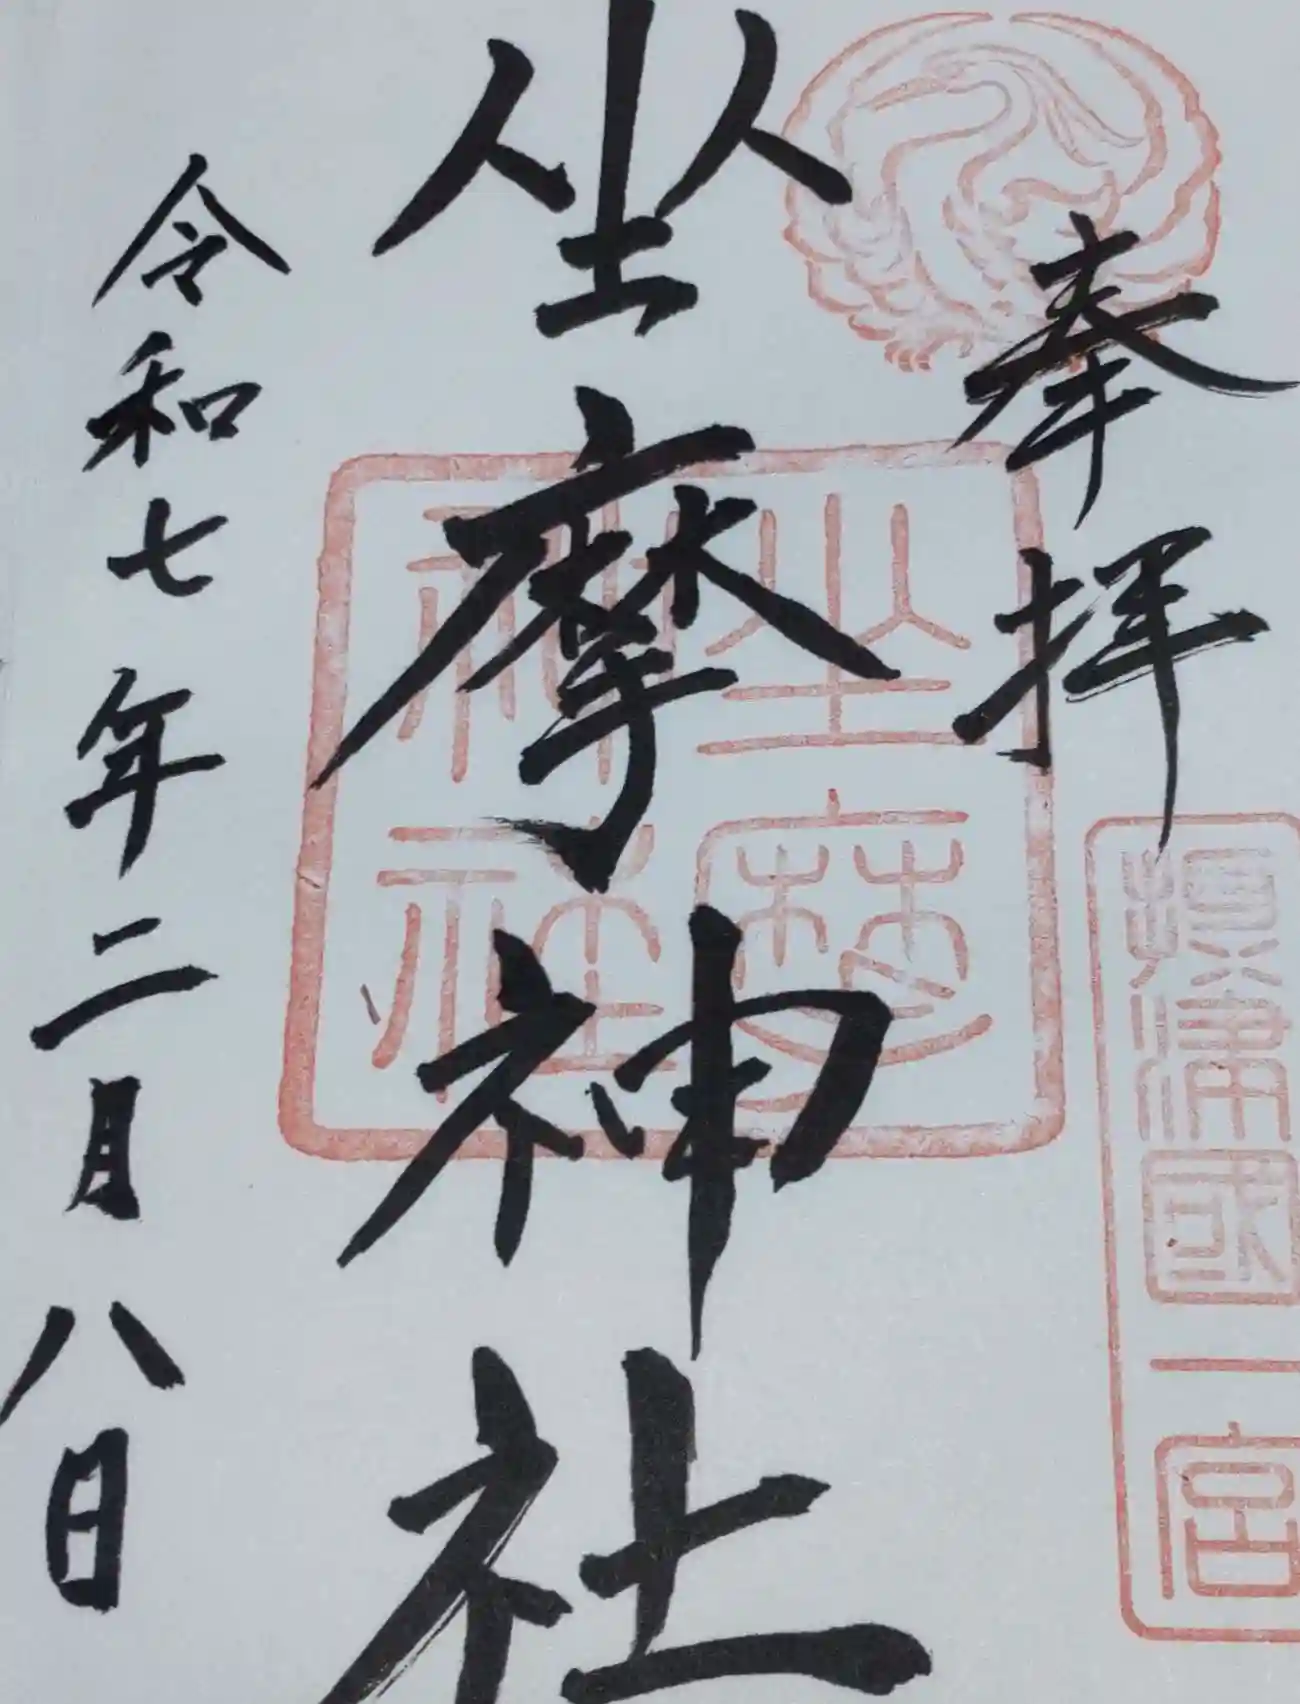 奉拝
攝津國一宮
坐摩神社
坐摩神社
令和七年二月八日